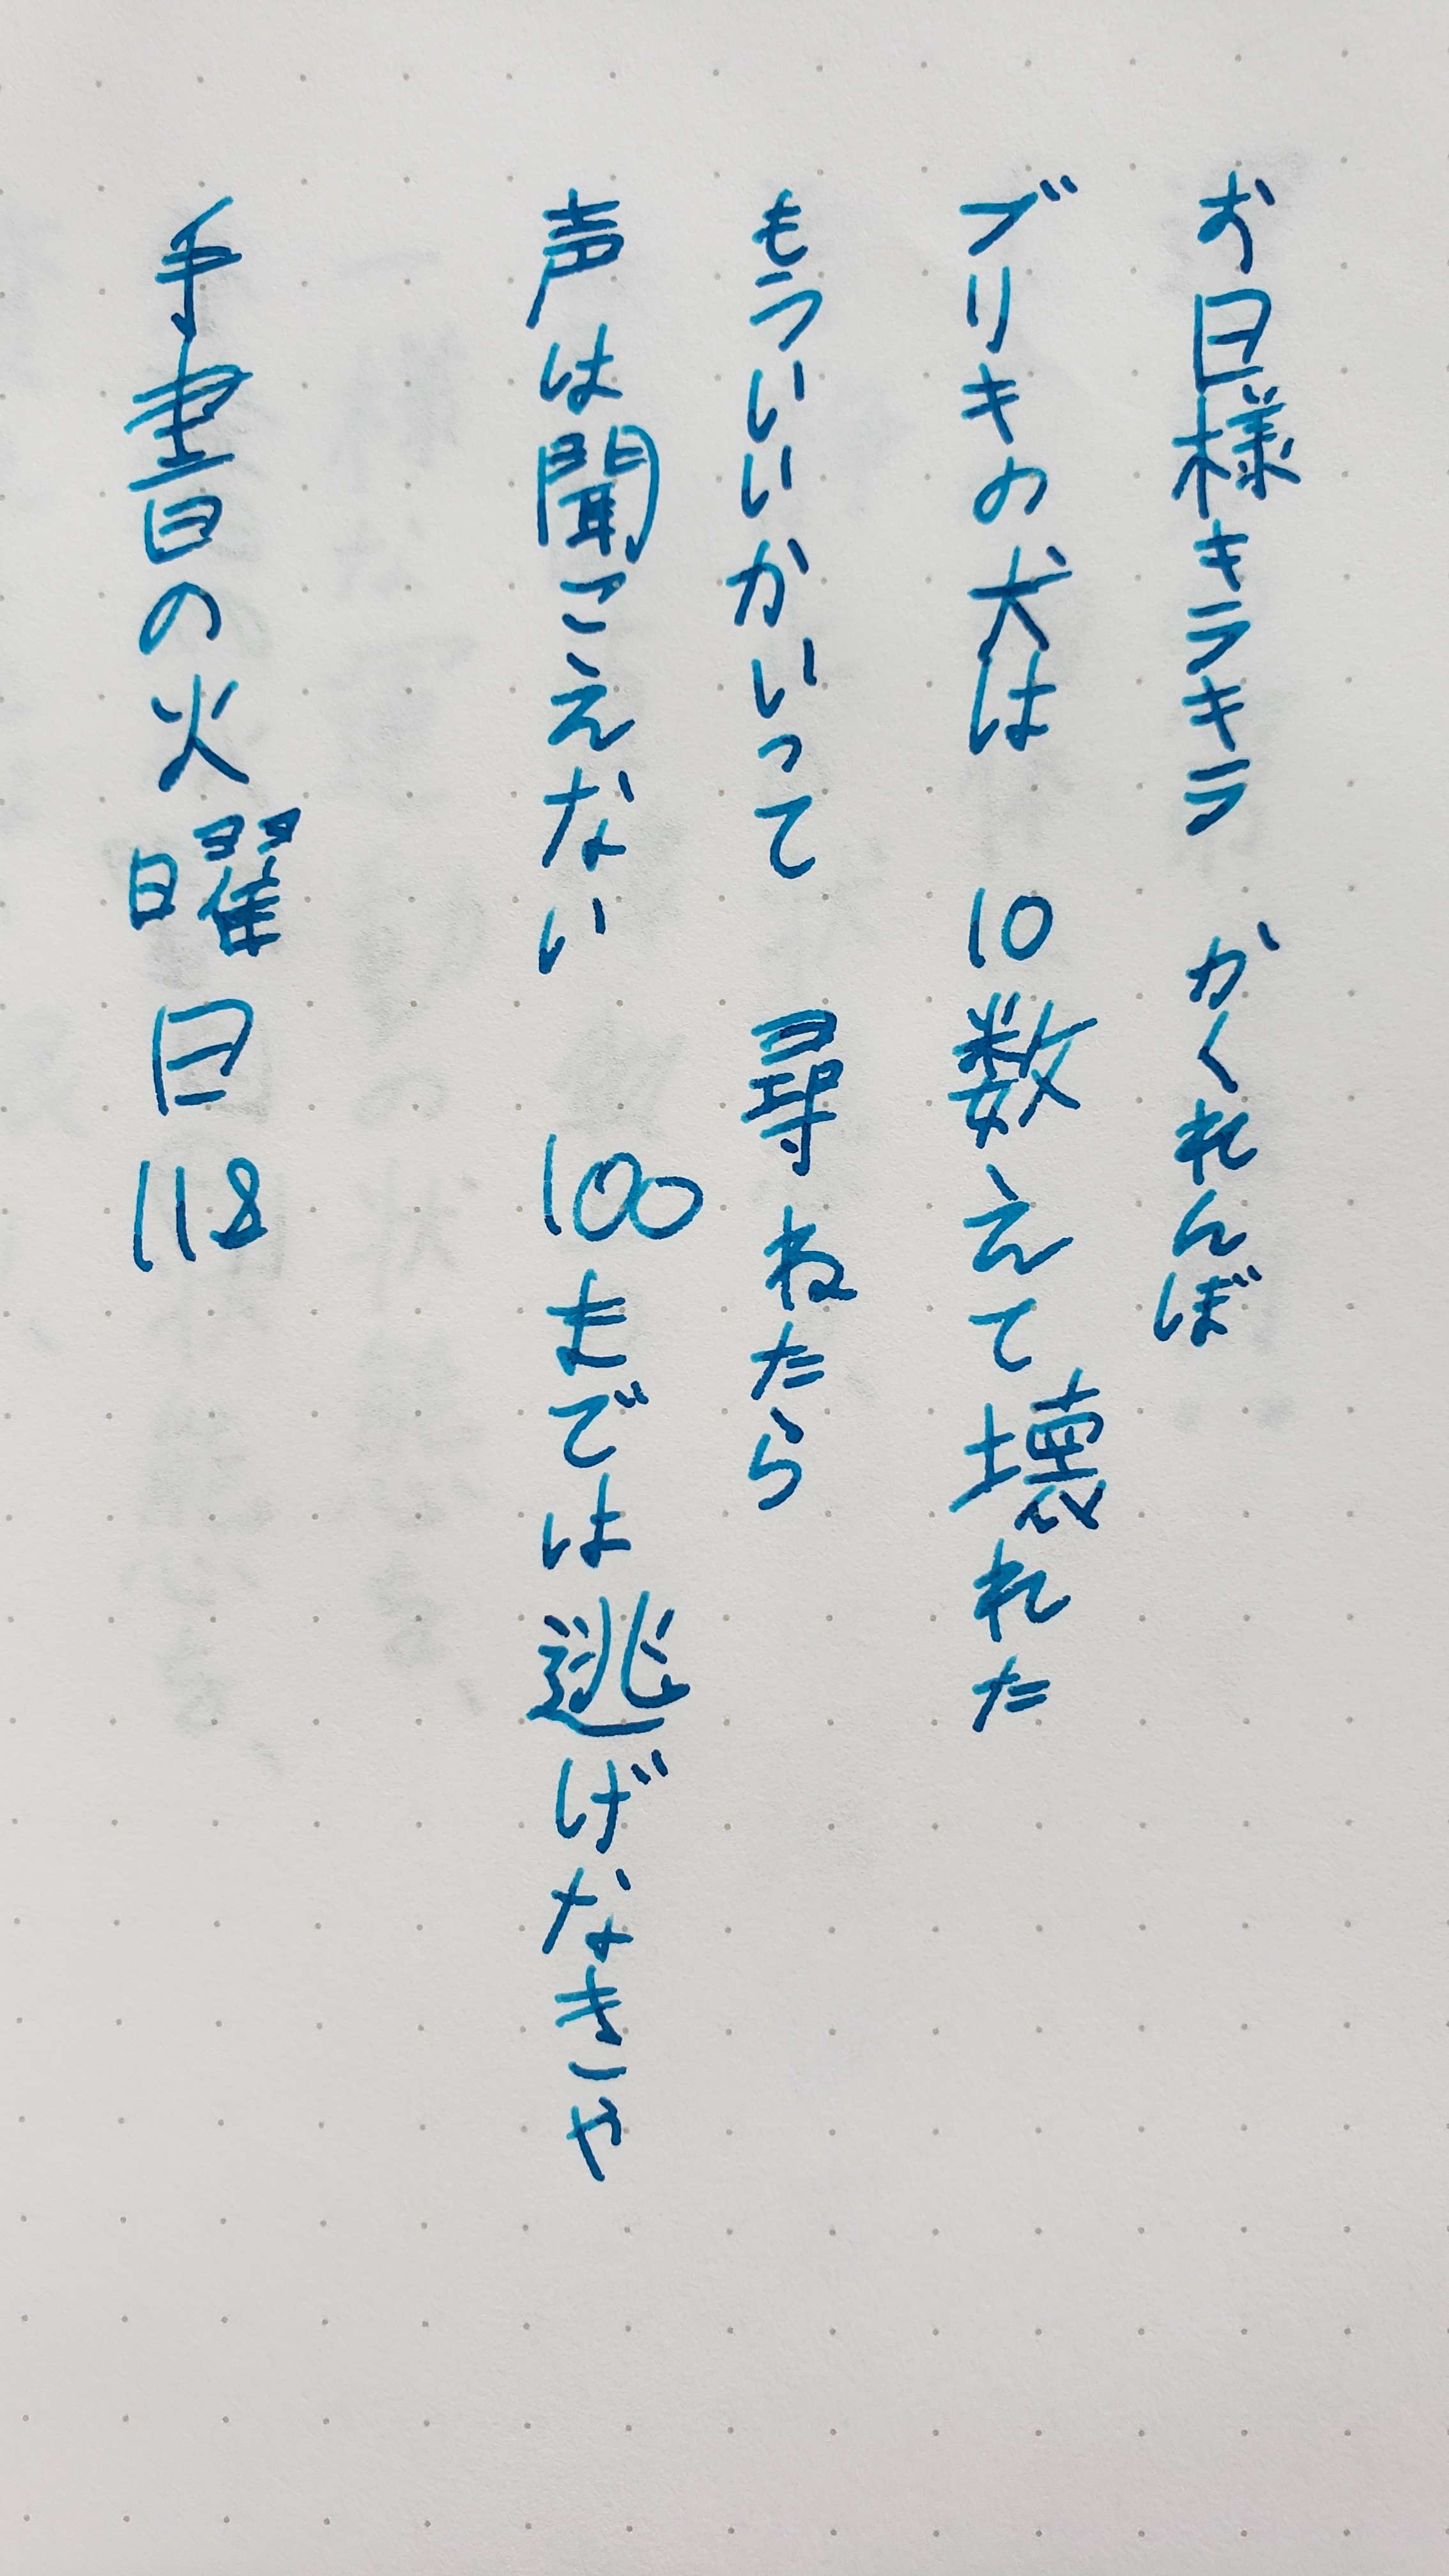 お日様キラキラ　かくれんぼ
ブリキの犬は　10数えて壊れた
もういいかいって　尋ねたら
声は聞こえない　100までは逃げなきゃ
手書の火曜日118